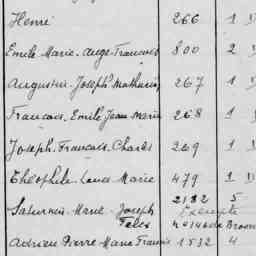 Henri 266 1
Emile Marie Ange Francois 800 2
Augustin Joseph Mathurin 267 1
Francois Emile Jean Marie 268 1
Joseph Francois Charles 269 1
Théophile Louis Marie 479 1
Saturnin Marie Joseph 2182 5
Exempté
Adrien Pierre Marie Francis 1532 4